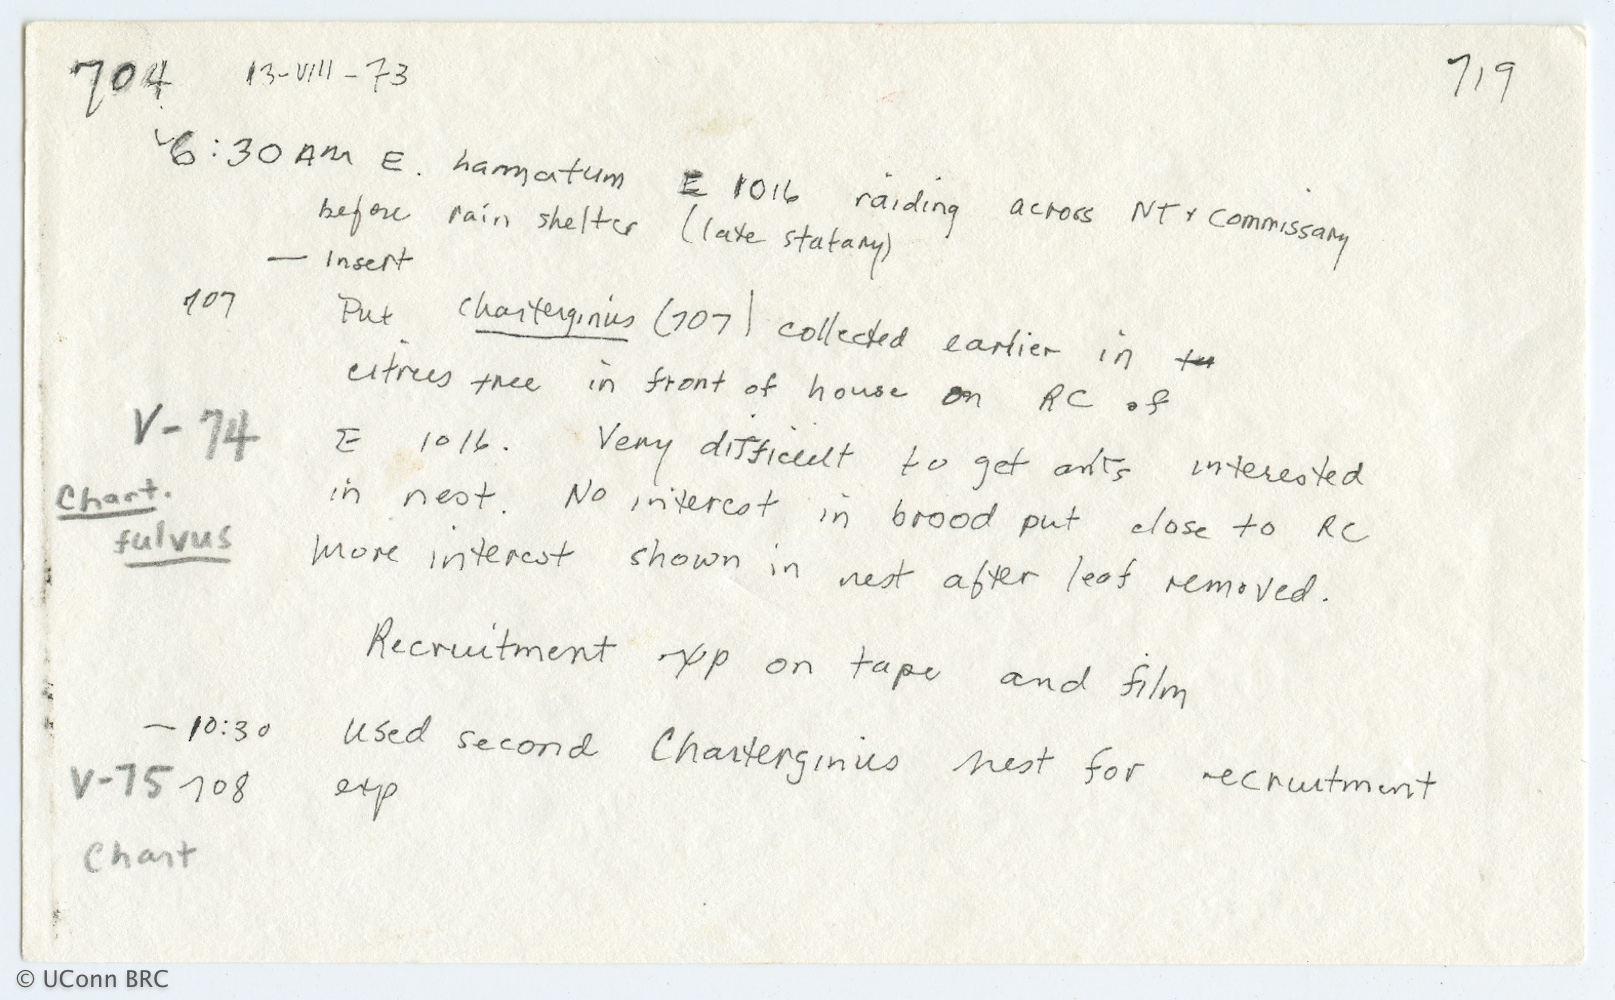 704 13-VIII-73 719
6:30 AM E. hamatum E 1016 raiding across NT & Commissary
before rain shelter (late statary)
— Insert
707 Put Charterginius (707) collected earlier in
citrus tree in front of house on RC of
V-74 E 1016. Very difficult to get ants interested
Chart. in nest. No interest in brood put close to RC
fulvus More interest shown in nest after leaf removed.
Recruitment exp on tape and film
— 10:30 Used second Charterginius nest for recruitment
V-75 708 exp
Chart
© UConn BRC